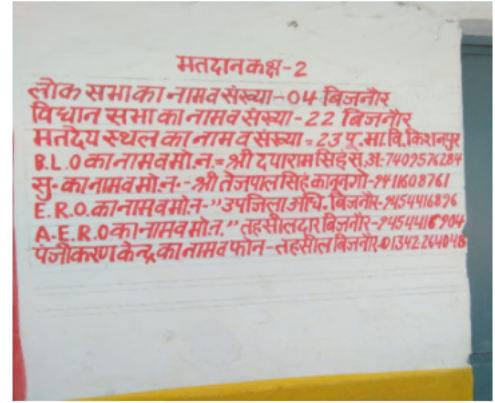 मतदान कक्ष-2
लोक सभा का नाम व संख्या-04 बिजनौर
विधान सभा का नाम व संख्या-22 बिजनौर
मतदेय स्थल का नाम व संख्या = 23 पू. मा. वि. किशनपुर
B.L.O का नाम व मो.न.= श्री दयाराम सिंह स.अ. 7409576284
सु- का नाम व मो.न.- श्री तेजपाल सिंह कानूनगो-9411608761
E.R.O. का नाम व मो.न-" उपजिला अधि. बिजनौर-9454416896
A-E.R.O का नाम व मो.न. " तहसीलदार बिजनौर-9454416904
पंजीकरण केन्द्र का नाम व फोन-तहसील बिजनौर-01342-264048